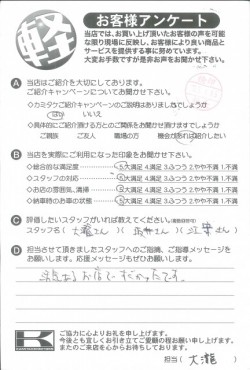 軽
お客様アンケート
当店では、お買い上げ頂いたお客様の声を可能
な限り現場に反映し、お客様により良い商品と
サービスを提供する事に努めています。
大変お手数ですが是非お声をお聞かせ下さい。
A 当店はご紹介を大切にしております。
ご紹介キャンペーンについてお聞かせ下さい。
◇カミタケご紹介キャンペーンのご説明はありましたでしょうか
はい いいえ
◇具体的にご紹介頂ける方とのご関係をお聞かせ頂けますでしょうか
ご親族 ご友人 職場の方 機会があれば紹介したい
B 当店を実際にご利用になった印象をお聞かせ下さい。
◇総合的な満足度 5大満足 4.満足 3.ふつう 2.やや不満 1.不満
◇スタッフの対応 5大満足 4.満足 3.ふつう 2.やや不満 1.不満
◇お店の雰囲気、清掃 5大満足 4.満足 3.ふつう 2.やや不満 1.不満
◇納車時のお車の状態 5大満足 4.満足 3.ふつう 2.やや不満 1.不満
C 評価したいスタッフがいれば教えてください。(複数回答可)
スタッフ名( 大瀧さん )( さん )( さん )
D 担当させて頂きましたスタッフへのご指摘、ご指導メッセージを
お願いします。応援メッセージもぜひお願いします。
お店ですかったです。
K
ご協力に心よりお礼を申し上げます。
今後とも宜しくお引き立てご愛顧の程お願い申し上げます。
またのご来店を心からお待ちしております。
担当( 大瀧 )